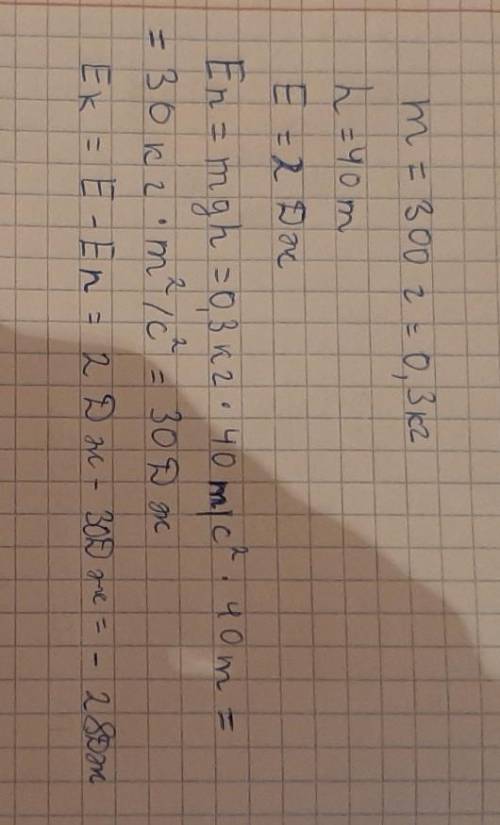 m = 300 г = 0,3 кг
h = 40 m
E = 2 Дж
Eп = mgh = 0,3 кг · 40 m/c² · 40 m =
= 30 кг · m²/c² = 30 Дж
Eк = E - Eп = 2 Дж - 30 Дж = - 28 Дж